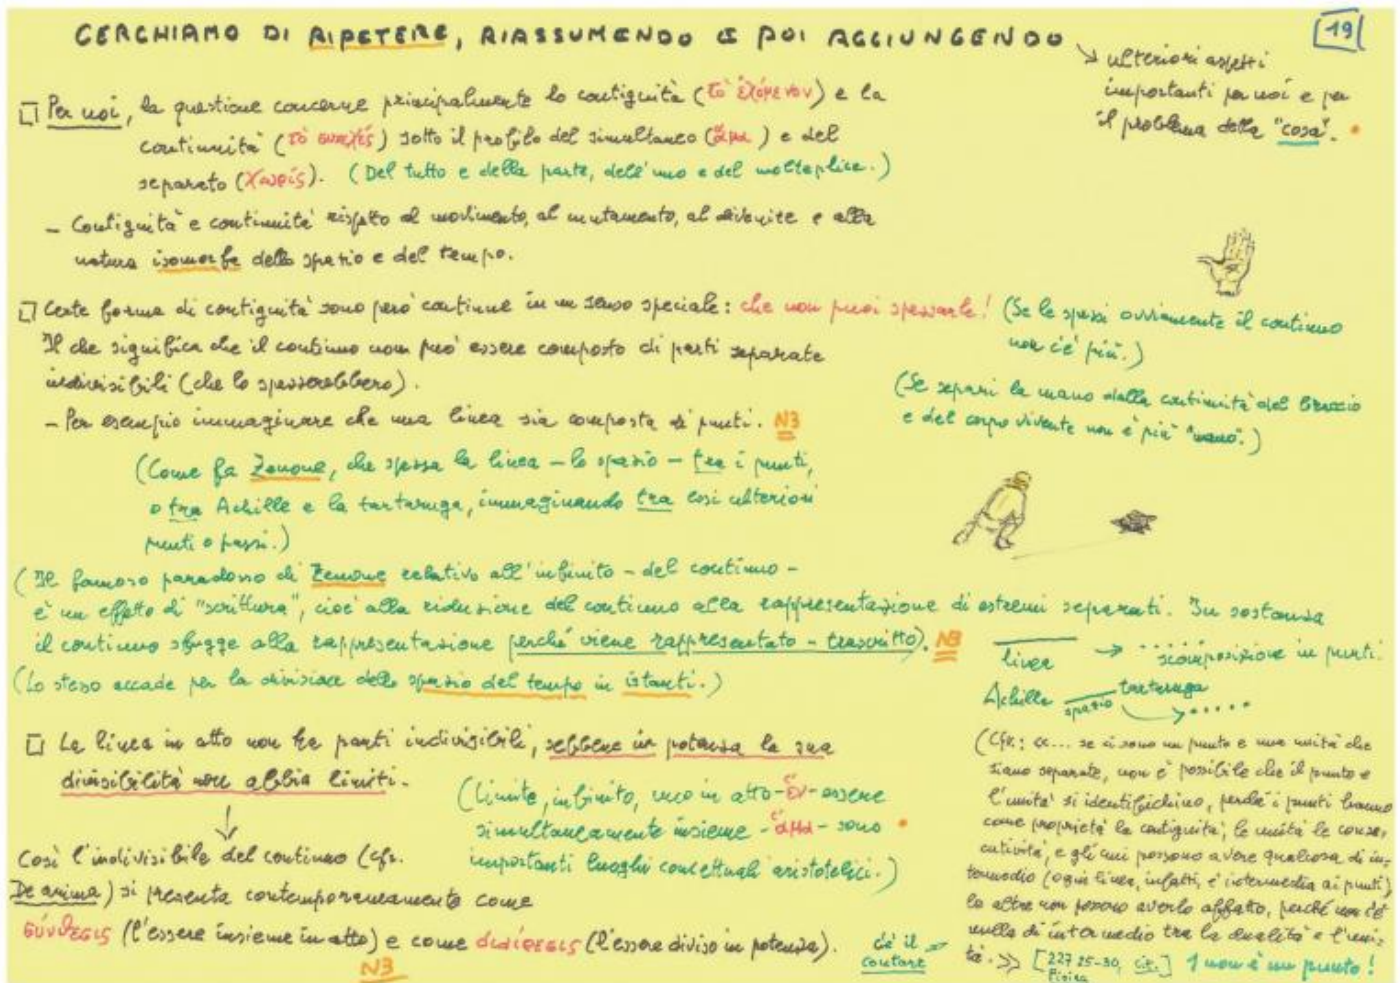 CERCHIAMO DI RIPETERE, RIASSUMENDO E POI AGGIUNGENDO
19
ulteriori aspetti
importanti per noi e per
il problema della "cosa".
Per noi, la questione concerne principalmente la contiguità (τὸ ἐχόμενον) e la
continuità (τὸ συνεχές) sotto il profilo del simultaneo (ἅμα) e del
separato (χωρίς). (Del tutto e della parte, dell'uno e del molteplice.)
- Contiguità e continuità rispetto al movimento, al mutamento, al divenire e alla
natura isomorfa dello spazio e del tempo.
Certe forme di contiguità sono però continue in un senso speciale: che non puoi spezzarle! (Se le spezzi ovviamente il continuo
non c'è più.)
Il che significa che il continuo non può essere composto di parti separate
indivisibili (che lo spezzerebbero).
(Se separi la mano dalla continuità del braccio
e del corpo vivente non è più "mano".)
- Per esempio immaginare che una linea sia composta di punti. NB
(Come fa Zenone, che spezza la linea - lo spazio - tra i punti,
o tra Achille e la tartaruga, immaginando tra essi ulteriori
punti o passi.)
(Il famoso paradosso di Zenone relativo all'infinito - del continuo -
è un effetto di "scrittura", cioè alla riduzione del continuo alla rappresentazione di estremi separati. In sostanza
il continuo sfugge alla rappresentazione perché viene rappresentato - trascritto). NB
(Lo stesso accade per la divisione dello spazio del tempo in istanti.)
linea → ..... scomposizione in punti.
Achille spazio tartaruga
→ .....
La linea in atto non ha parti indivisibili, sebbene in potenza la sua
divisibilità non abbia limiti.
(Limite, infinito, uno in atto - ἕν - essere
simultaneamente insieme - ἅμα - sono
importanti luoghi concettuali aristotelici.)
Così l'indivisibile del continuo (cfr.
De anima) si presenta contemporaneamente come
σύνθεσις (l'essere insieme in atto) e come διαίρεσις (l'essere diviso in potenza).
NB
(Cfr.: «... se ci sono un punto e una unità che
siano separate, non è possibile che il punto e
l'unità si identifichino, perché i punti hanno
come proprietà la contiguità, le unità la conse-
cutività, e gli uni possono avere qualcosa di in-
termedio (ogni linea, infatti, è intermedia ai punti)
le altre non possono averlo affatto, perché non c'è
nulla di intermedio tra la dualità e l'uni-
tà.» [227 25-30, Fisica cit.] 1 non è un punto!
c'è il
contare